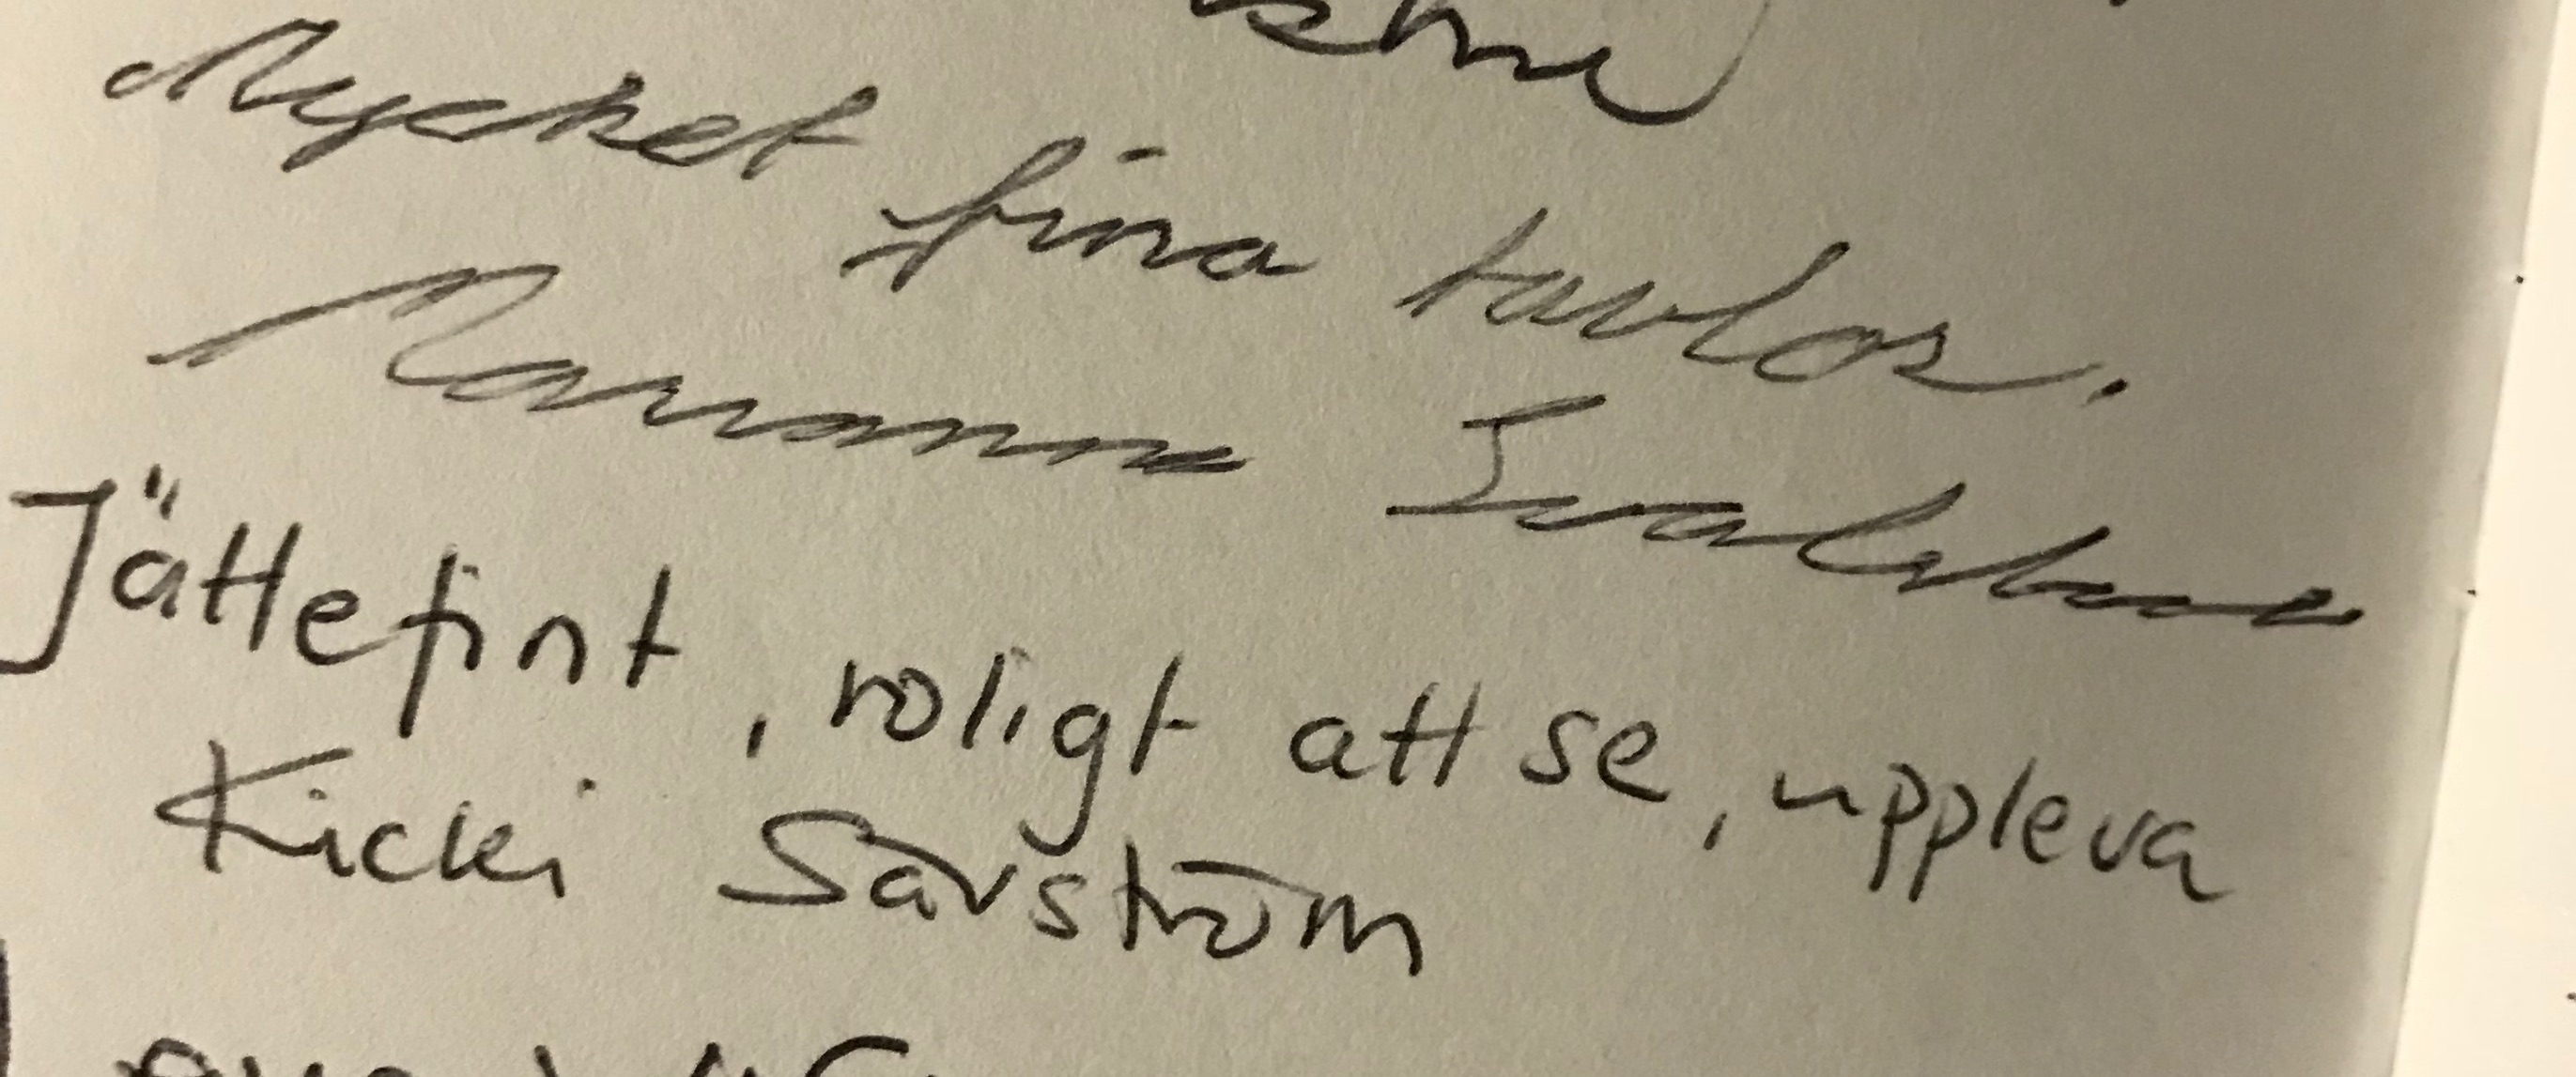 Mycket fina tavlor.
Marianne
Jättefint, roligt att se, uppleva
Kicki Sävström